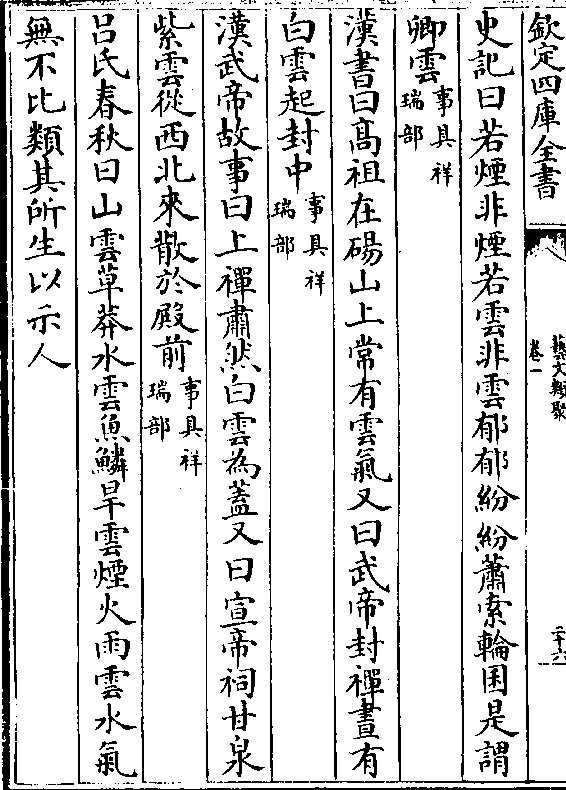 欽定四庫全書
藝文類聚
卷一
二十六
史記曰若煙非煙若雲非雲郁郁紛紛蕭索輪囷是謂
卿雲事具祥瑞部
漢書曰高祖在碭山上常有雲氣又曰武帝封禪晝有
白雲起封中事具祥瑞部
漢武帝故事曰上禪肅然白雲為蓋又曰宣帝祠甘泉
紫雲從西北來散於殿前事具祥瑞部
呂氏春秋曰山雲草莽水雲魚鱗旱雲煙火雨雲水氣
無不比類其所生以示人